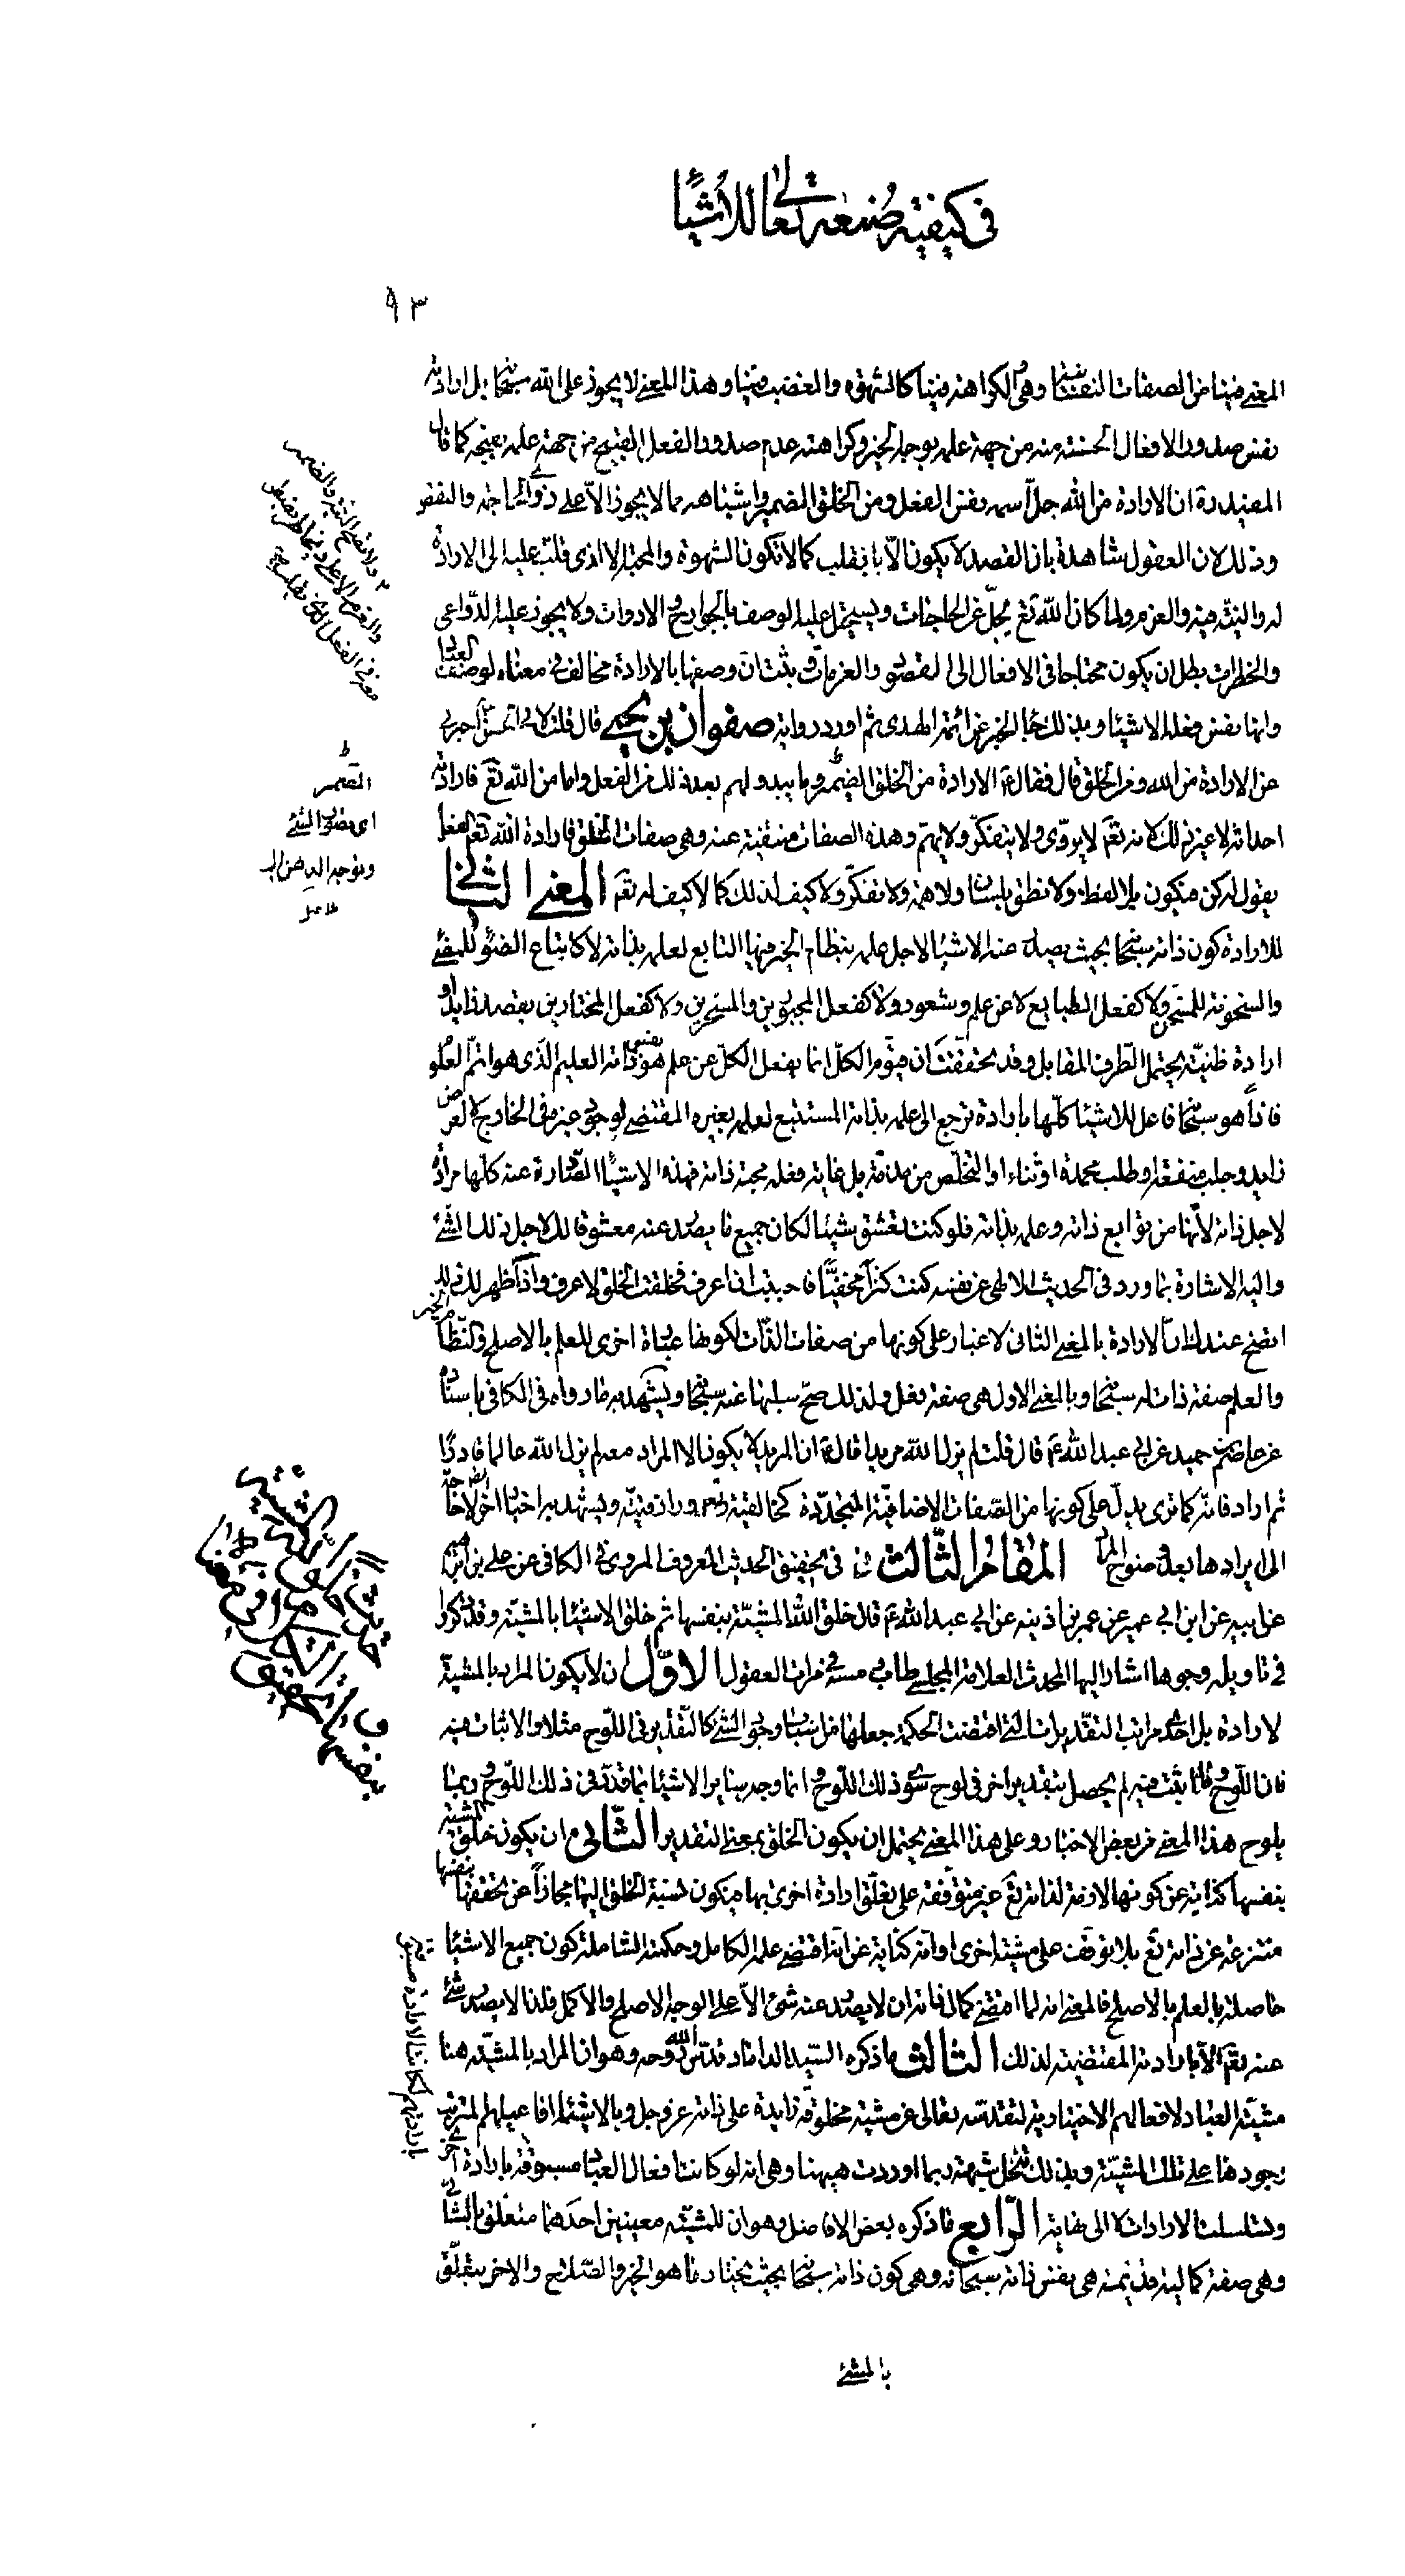 في كيفية صنعه تعالى للأشياء
٩٣
المعنى فينا من الصفات النفسانية وهي والكراهة فينا كالشهوة والغضب فينا وهذا المعنى لا يجوز على الله سبحانه بل ارادته
نفس صدور الافعال الحسنة منه من جهة علمه بوجه الخير وكراهته عدم صدور الفعل القبيح من جهة علمه بقبحه كما قال
المفيد ره ان الارادة من الله جل اسمه نفس الفعل ومن الخلق الضمير واشباهه مما لا يجوز الا على ذوي الحاجة والنقص
وذلك لان العقول شاهدة بان القصد لا يكون الا بالقلب كما لا تكون الشهوة والمحبة الا لذي قلب عليه الى الارادة
له والنية فيه والعزم ولما كان الله تع يجل عن الحاجات ويستحيل عليه الوصف بالجوارح والادوات ولا يجوز عليه الدواعي
والخطرات بطل ان يكون محتاجا في الافعال الى القصود والعزمات وثبت ان وصفها بالارادة مخالف في معناه لوصف العباد
وانها نفس فعله الاشياء وبذلك جاء الخبر عن ائمة الهدى ثم اورد رواية صفوان بن يحيى قال قلت لابي الحسن ع اخبرني
عن الارادة من الله ومن الخلق قال فقال ع الارادة من الخلق الضمير وما يبدو لهم بعد ذلك من الفعل واما من الله تع فارادته
احداثه لا غير ذلك لانه تع لا يروى ولا يتفكر ولا يهم وهذه الصفات منفية عنه وهي صفات الخلق فارادة الله تع الفعل
يقول له كن فيكون بلا لفظ ولا نطق بلسان ولا همة ولا تفكر ولا كيف لذلك كما لا كيف له تع المعنى الثاني
للارادة كون ذاته سبحانه بحيث يصدر عنه الاشياء لاجل علمه بنظام الخير فيها التابع لعلمه بذاته لا كاتباع الضوء للمضئ
والسخونة للمسخن ولا كفعل الطبايع لا عن علم وشعور ولا كفعل المجبورين والمسخرين ولا كفعل المختارين بقصد زايد او
ارادة ظنية يحتمل الطرف المقابل وقد تحققت ان قيوم الكل انما يفعل الكل عن علم هو نفس ذاته العليم الذي هو اتم العلوم
فاذا هو سبحانه فاعل للاشياء كلها بارادة ترجع الى علمه بذاته المستتبع لعلمه بغيره المقتضي لوجود غيره في الخارج لا لغرض
زايد وجلب منفعة او طلب محمدة او ثناء او التخلص من مذمة بل غاية فعله محبة ذاته فهذه الاشياء الصادرة عنه كلها مرادة
لاجل ذاته لانها من توابع ذاته وعلمه بذاته فلو كنت تعشق شيئا لكان جميع ما يصدر عنه معشوقا لك لاجل ذلك الشئ
واليه الاشارة بما ورد في الحديث الالهي عن نفسه كنت كنزا مخفيا فاحببت ان اعرف فخلقت الخلق لاعرف واذا ظهر لك ذلك
اتضح عندك ان الارادة بالمعنى الثاني لا غبار على كونها من صفات الذات لكونها عبارة اخرى للعلم بالاصلح والنظام الخير
والعلم صفة ذات له سبحانه وبالمعنى الاول هي صفة فعل ولذلك صح سلبها عنه سبحانه ويشهد به ما رواه في الكافي باسناده
عن عاصم بن حميد عن ابي عبد الله ع قال قلت لم يزل الله مريدا قال ع ان المريد لا يكون الا المراد معه لم يزل الله عالما قادرا
ثم اراد فانه كما ترى يدل على كونها من الصفات الاضافية المتجددة كخالقيته تع ورازقيته ويشهد به اخبار اخر لا حاجة
الى ايرادها بعد وضوح المراد المقام الثالث في تحقيق الحديث المعروف المروي في الكافي عن علي بن ابراهيم
عن ابيه عن ابن ابي عمير عن عمر بن اذينه عن ابي عبد الله ع قال خلق الله المشية بنفسها ثم خلق الاشياء بالمشية وقد ذكروا
في تاويله وجوها اشار اليها المحدث العلامة المجلسي طاب رمسه في مرات العقول الاول ان لا يكون المراد بالمشية
لارادة بل احدى مراتب التقديرات التي اقتضت الحكمة جعلها من اسباب وجود الشئ كالتقدير في اللوح مثلا والاثبات فيه
فان اللوح وما اثبت فيه لم يحصل بتقدير اخر في لوح سوى ذلك اللوح وانما وجد ساير الاشياء بما قدر في ذلك اللوح وربما
يلوح هذا المعنى من بعض الاخبار وعلى هذا المعنى يحتمل ان يكون الخلق بمعنى التقدير الثاني ان يكون خلق المشية
بنفسها كناية عن كونها لازمة لذاته تع غير متوقفة على تعلق ارادة اخرى بها فيكون نسبة الخلق اليها مجازا عن تحققها بنفسها
منتزعة عن ذاته تع بلا توقف على مشية اخرى او انه كناية عن انه اقتضى علمه الكامل وحكمته الشاملة كون جميع الاشياء
حاصلة بالعلم بالاصلح فالمعنى انه لما اقتضى كمال ذاته ان لا يصدر عنه شئ الا على الوجه الاصلح والاكمل فلذا لا يصدر شئ
عنه تع الا بارادته المقتضية لذلك الثالث ما ذكره السيد الداماد قدس الله روحه وهو ان المراد بالمشية هنا
مشية العباد لافعالهم الاختيارية لتقدسه تعالى عن مشية مخلوقة زايدة على ذاته عز وجل وبالاشياء افاعيلهم المترتب
وجودها على تلك المشية وبذلك تنحل شبهة ربما اوردت هيهنا وهي انه لو كانت افعال العباد مسبوقة بارادتهم
وتسلسلت الارادات لا الى نهاية الرابع ما ذكره بعض الافاضل وهو ان للمشية معنيين احدهما متعلق بالشائي
وهي صفة كمالية قديمة هي نفس ذاته سبحانه وهي كون ذاته سبحانه بحيث يختار ما هو الخير والصلاح والاخر يتعلق
بالمشئ
الضمير
اي تصور الشئ
وتوجه الذهن اليه
حديث خلق الله المشية
بنفسها